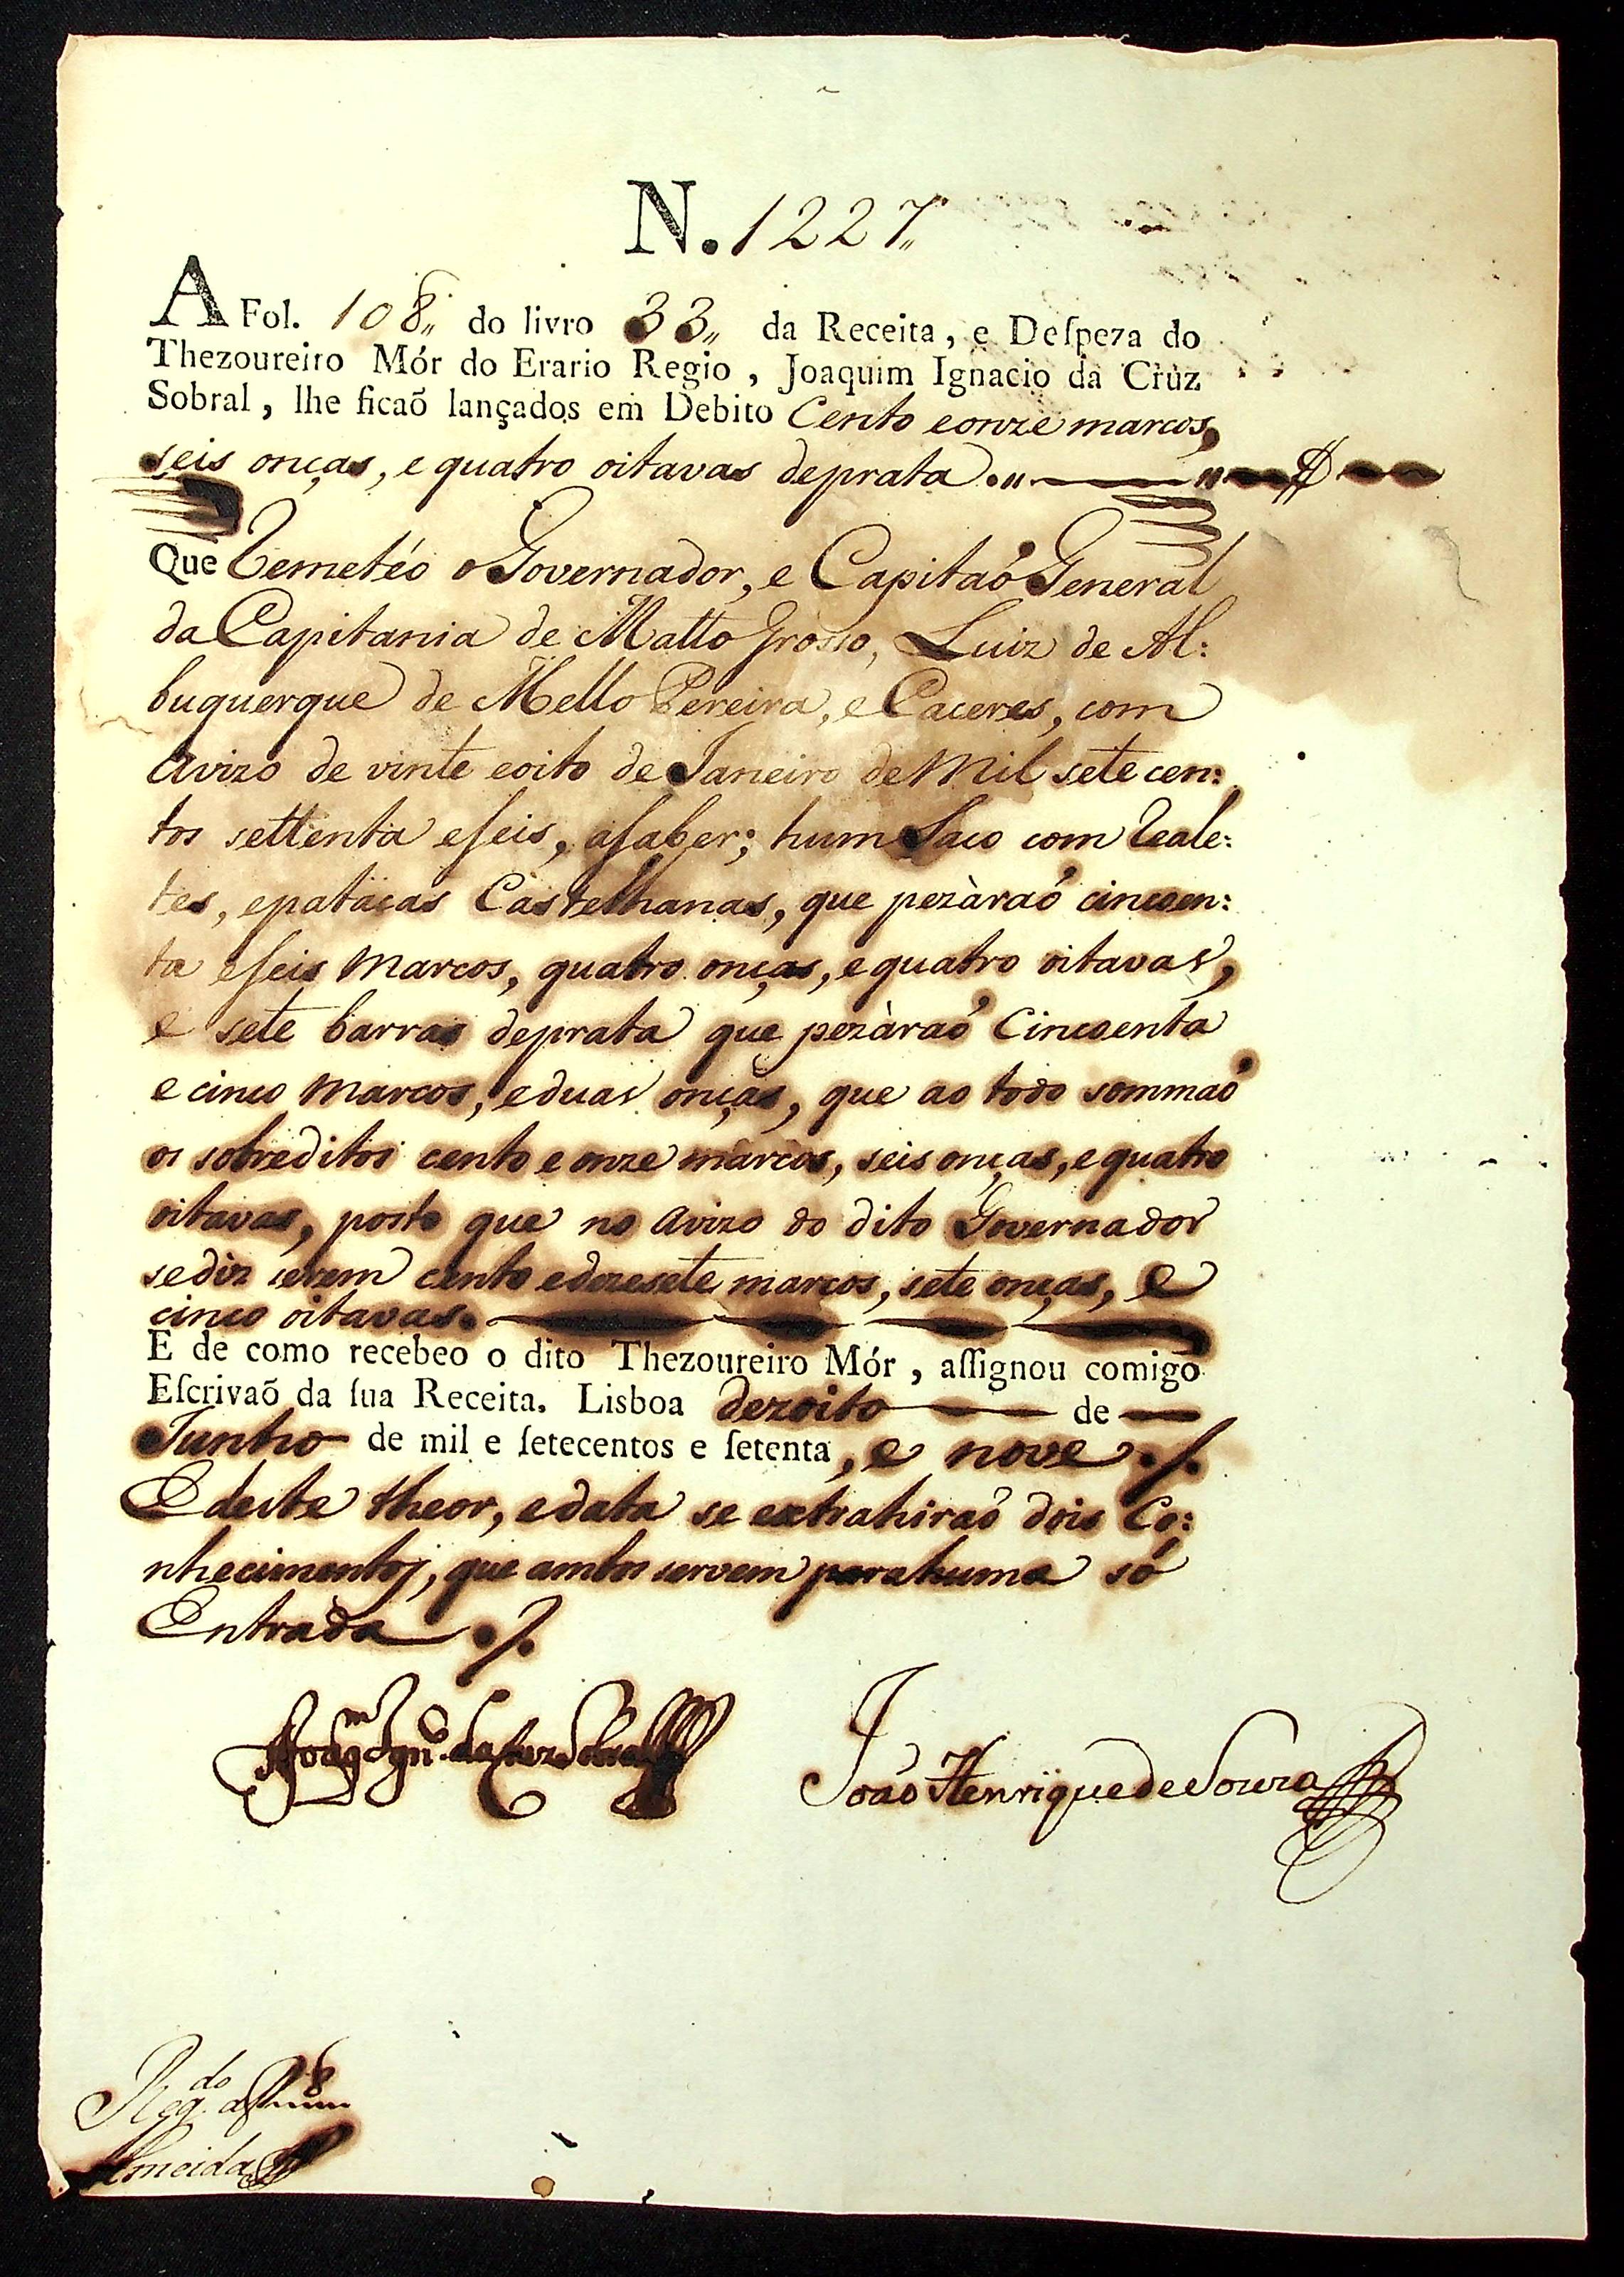 N. 1227,,
A Fol. 108,, do livro 33,, da Receita, e Deſpeza do
Thezoureiro Mór do Erario Regio, Joaquim Ignacio da Cruz
Sobral, lhe ficaõ lançados em Debito Cento eonze marcos,
seis onças, e quatro oitavas deprata.,, ,, $
Que Remetéo o Governador, e Capitaõ General
da Capitania de Matto Grosso, Luiz de Al:
buquerque de Mello Pereira, e Caceres, com
Avizo de vinte eoito de Janeiro de Mil setecen:
tos settenta eſeis, aſaber; hum Saco com Reale:
tes, epatacas Castelhanas, que pezàraõ cincoen:
ta eſeis Marcos, quatro onças, e quatro oitavas,
e sete barras deprata que pezàraõ Cincoenta
e cinco Marcos, eduas onças, que ao todo sommaõ
os sobreditos cento e onze marcos, seis onças, e quatro
oitavas, posto que no Avizo do dito Governador
sediz serem cento edezesete marcos, sete onças, e
cinco oitavas.
E de como recebeo o dito Thezoureiro Mór, aſſignou comigo
Eſcrivaõ da ſua Receita. Lisboa dezoito de
Junho de mil e ſetecentos e ſetenta, e nove ./.
E deste theor, edata se extrahiraõ dois Co:
nhecimentos, que ambos servem para huma só
Entrada ./.
Joaqm Ign.o da Cruz Sobral
João Henrique de Souza
Reg.do a
Almeida